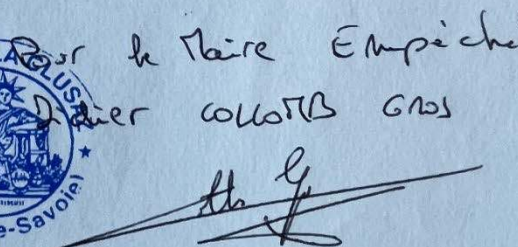 Pour le Maire Empêché
Didier COLLOMB GROS
CLUSA
e-Savoie)